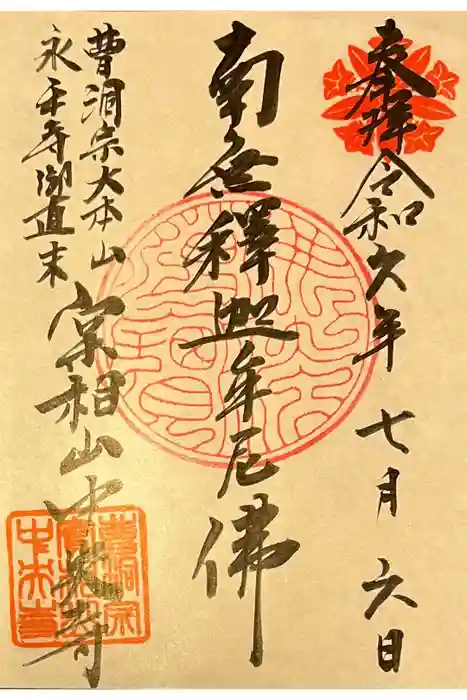 奉拝 令和六年 七月 六日
南無釋迦牟尼佛
曹洞宗大本山
永平寺御直末
実相山中央寺
曹洞宗
中央寺